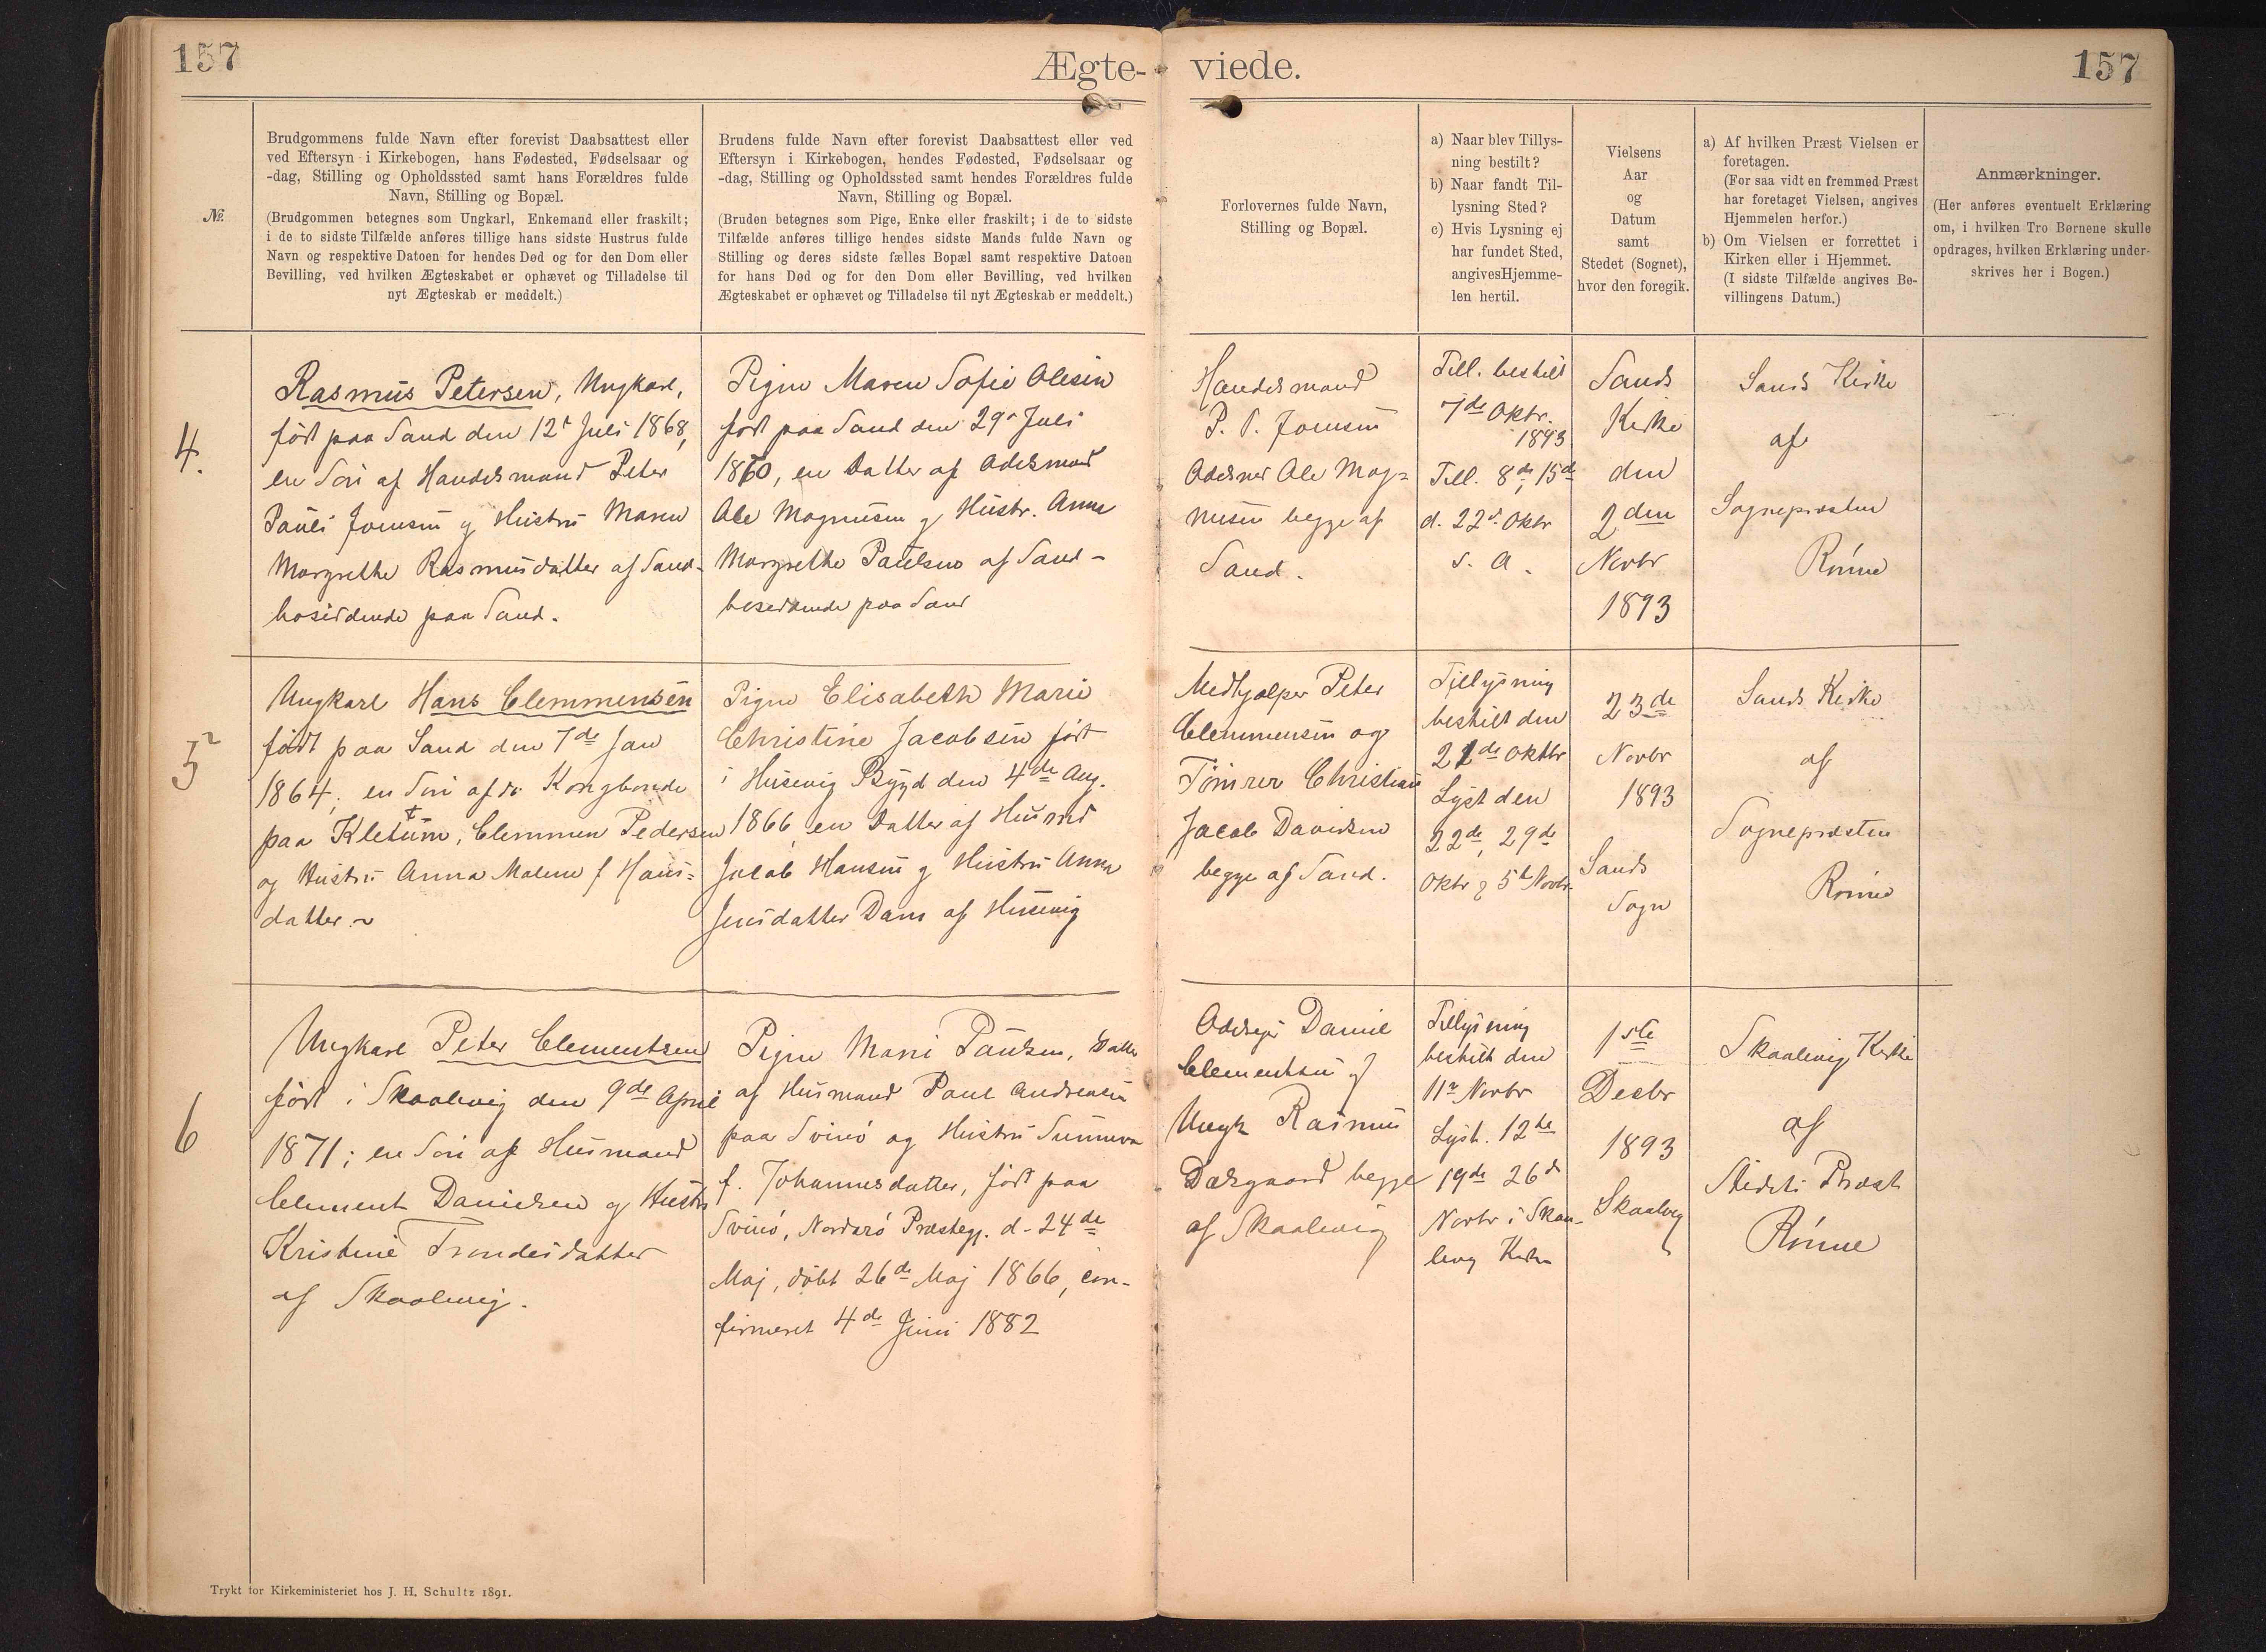 157
Ægte-
viede.
157
№
Brudgommens fulde Navn efter forevist Daabsattest eller
ved Eftersyn i Kirkebogen, hans Fødested, Fødselsaar og
-dag, Stilling og Opholdssted samt hans Forældres fulde
Navn, Stilling og Bopæl.
(Brudgommen betegnes som Ungkarl, Enkemand eller fraskilt;
i de to sidste Tilfælde anføres tillige hans sidste Hustrus fulde
Navn og respektive Datoen for hendes Død og for den Dom eller
Bevilling, ved hvilken Ægteskabet er ophævet og Tilladelse til
nyt Ægteskab er meddelt.)
Brudens fulde Navn efter forevist Daabsattest eller ved
Eftersyn i Kirkebogen, hendes Fødested, Fødselsaar og
-dag, Stilling og Opholdssted samt hendes Forældres fulde
Navn, Stilling og Bopæl.
(Bruden betegnes som Pige, Enke eller fraskilt; i de to sidste
Tilfælde anføres tillige hendes sidste Mands fulde Navn og
Stilling og deres sidste fælles Bopæl samt respektive Datoen
for hans Død og for den Dom eller Bevilling, ved hvilken
Ægteskabet er ophævet og Tilladelse til nyt Ægteskab er meddelt.)
Forlovernes fulde Navn,
Stilling og Bopæl.
a) Naar blev Tillys-
ning bestilt?
b) Naar fandt Til-
lysning Sted?
c) Hvis Lysning ej
har fundet Sted,
angives Hjemme-
len hertil.
Vielsens
Aar
og
Datum
samt
Stedet (Sognet),
hvor den foregik.
a) Af hvilken Præst Vielsen er
foretagen.
(For saa vidt en fremmed Præst
har foretaget Vielsen, angives
Hjemmelen herfor.)
b) Om Vielsen er forrettet i
Kirken eller i Hjemmet.
(I sidste Tilfælde angives Be-
villingens Datum.)
Anmærkninger.
(Her anføres eventuelt Erklæring
om, i hvilken Tro Børnene skulle
opdrages, hvilken Erklæring under-
skrives her i Bogen.)
4.
Rasmus Petersen, Ungkarl,
født paa Sand den 12 Juli 1868,
en Søn af Handelsmand Peter
Pauli Joensen og Hustru Maren
Margrethe Rasmusdatter af Sand-
bosiddende paa Sand.
Pigen Maren Sofie Olesen
født paa Sand den 29 Juli
1870, en Datter af Odelsmand
Ole Magnusen og Hustr. Anna
Margrethe Paulsen af Sand-
bosiddende paa Sand
Handelsmand
P. P. Joensen
Odelsmd Ole Mag-
nusen begge af
Sand.
Till. bestilt
7de Oktr.
1893
Till. 8de, 15de
d. 22d Oktr
s. A.
Sands
Kirke
den
2den
Novbr
1893
Sands Kirke
af
Sognepræsten
Rønne
5
Ungkarl Hans Clemmensen
født paa Sand den 7de Jan
1864; en Søn af Kongbonde
paa Kletum, Clemmen Pedersen
og Hustru Anna Malene f Hans-
datter.
Pigen Elisabeth Marie
Christine Jacobsen født
i Husevig Bygd den 4de Aug.
1866 en Datter af Husmd
Jacob Hansen og Hustru Anna
Jensdatter Dam af Husevig
Medhjælper Peter
Clemmensen og
Tømrer Christian
Jacob Davidsen
begge af Sand.
Tillysning
bestilt den
21de Oktbr
Lyst den
22de, 29de
Oktr & 5te Novbr.
23de
Novbr
1893
Sands
Sogn
Sands Kirke
af
Sognepræsten
Rønne
6
Ungkarl Peter Clementsen
født i Skaalevig den 9de April
1871; en Søn af Husmand
Clement Danielsen og Hustru
Kristine Trondesdatter
af Skaalevig.
Pigen Marie Paulsen, Datter
af Husmand Paul Andreasen
paa Svinø og Hustru Sunneva
f. Johannesdatter, født paa
Svinø, Norderø Præstegj. d. 24de
Maj, døbt 26de Maj 1866, con-
firmeret 4de Juni 1882
Odelsejer Daniel
Clementsen og
Ungk Rasmus
Dalsgaard begge
af Skaalevig
Tillysning
bestilt den
11 Novbr
Lyst. 12te
19de 26d
Novbr i Skaa-
levig Kirke
1ste
Decbr
1893
Skaalevig
Skaalevig Kirke
af
Stedets Præst
Rønne
Trykt for Kirkeministeriet hos J. H. Schultz 1891.